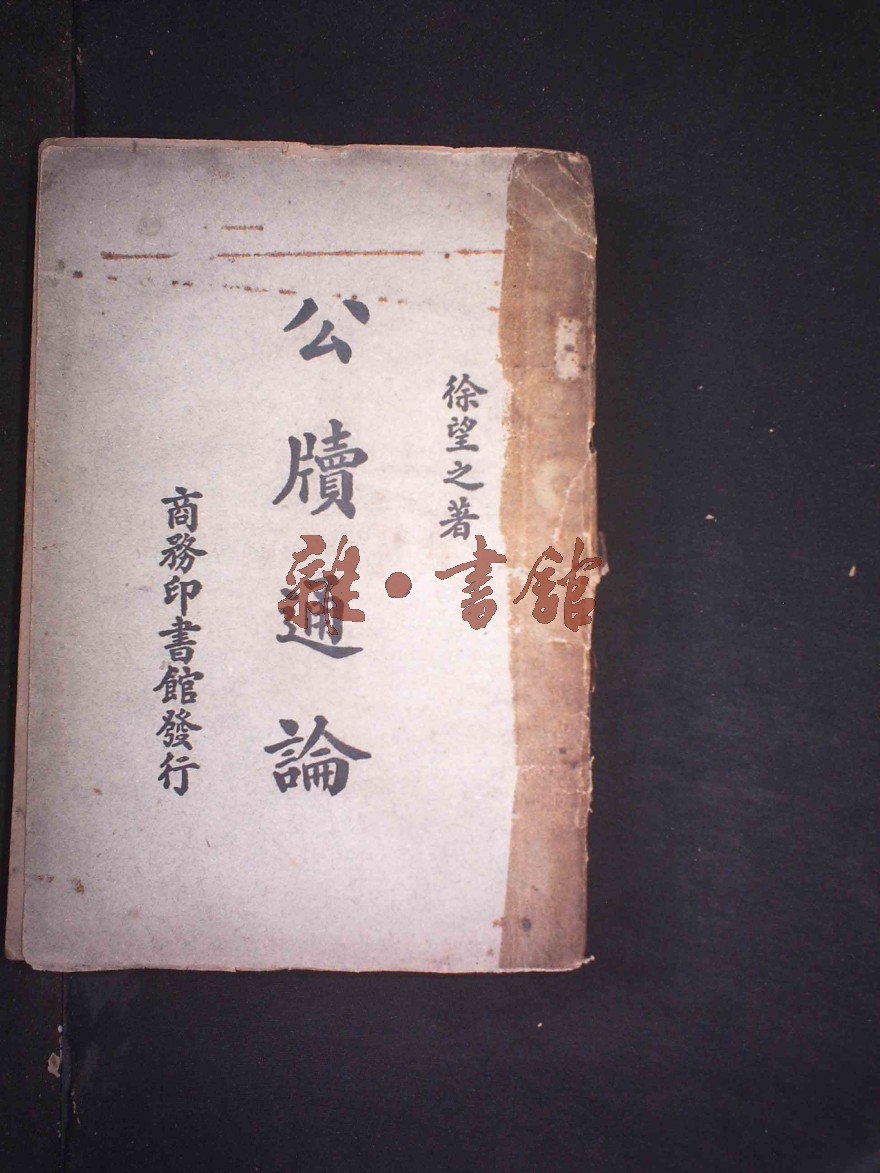 徐望之著
公牘通論
商務印書館發行
雜·書館